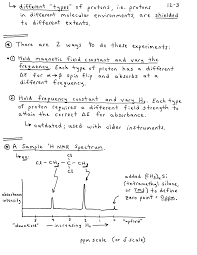 12-3
↳ different "types" of protons, i.e. protons
in different molecular environments, are shielded
to different extents.
* There are 2 ways to do these experiments:
① Hold magnetic field constant and vary the
frequency. Each type of proton has a different
ΔE for α→β spin flip and absorbs at a
different frequency.
② Hold frequency constant and vary H₀. Each type
of proton requires a different field strength to
attain the correct ΔE for absorbance.
↳ outdated; used with older instruments.
* A Sample ¹H NMR Spectrum:
Cl
Cl-CH₂-C-CH₃
Cl
added (CH₃)₄Si
(tetramethyl silane,
or TMS) to define
zero point: 0ppm.
absorbance
intensity
"downfield"
increasing H₀
"upfield"
ppm scale (or δ scale)